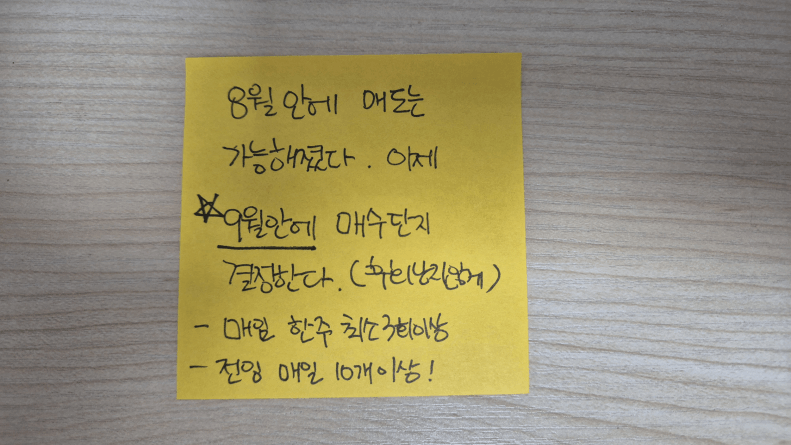 8월 안에 매도는
가능해졌다. 이제
☆9월안에 매수단지
결정한다. (후회남지않게)
- 매임 한주 최소 3회이상
- 전임 매일 10개 이상!